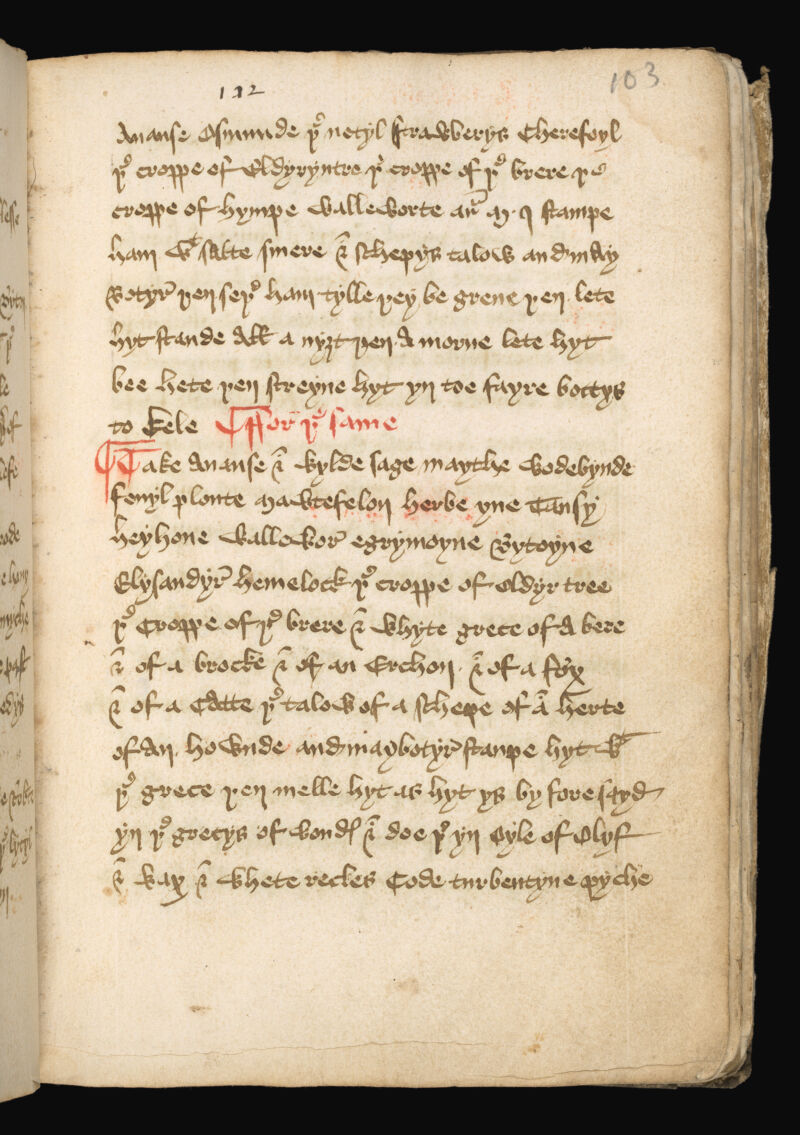 112
103
Auanse Osmunde þe netyl strawberys Therefoyl
þe croppe of Eldyryntre þe croppe of þe brere þe
croppe of hympe walleworte an m. j stampe
ham wt salte smere & schepys talow and may
Botyr þen seþe ham tylle þey be grene þen lete
hyt stande all a nyȝt þen A morne lete hyt
bee hete þen streyne hyt yn toe fayre bottys
to kele ffor þe same
Take Auanse & wylde sage maythe wodebynde
fenyl plonte mawtefelon herbe yne Tansy
heyhone wallewor egrymoyne Bytoyne
Elysandyr hemelock þe croppe of eldyr tree
þe Croppe of þe brere & whyte grece of A bere
& of a brocke & of an Erchon & of a fox
& of a Catte þe talow of a schepe of a herte
of An hownde and may botyr stanpe hyt wt
þe grece þen melle hyt as hyt ys by fore sayd
yn þe grecys of wond & doe þer yn Oyle of Olyf
& wax & whete recles Code turbentyne pyche